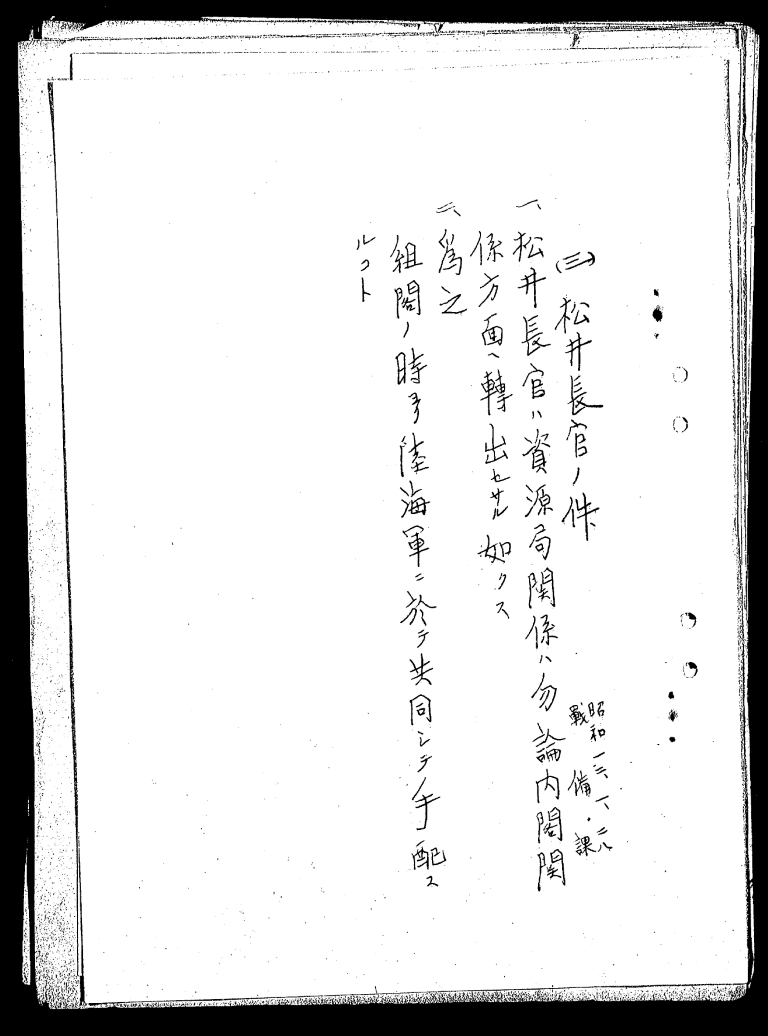 (三)松井長官ノ件
昭和一三、一、二八
戰備課
一、松井長官ハ資源局関係ハ勿論内閣関
係方面ヘ轉出セサル如クス
二、爲之
組閣ノ時ヲ陸海軍ニ於テ共同シテ手配ス
ルコト